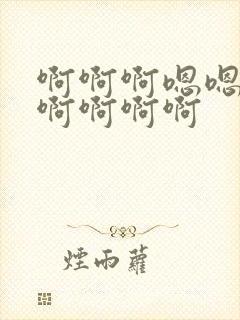 啊啊啊嗯嗯
啊啊啊啊
煙雨蘿